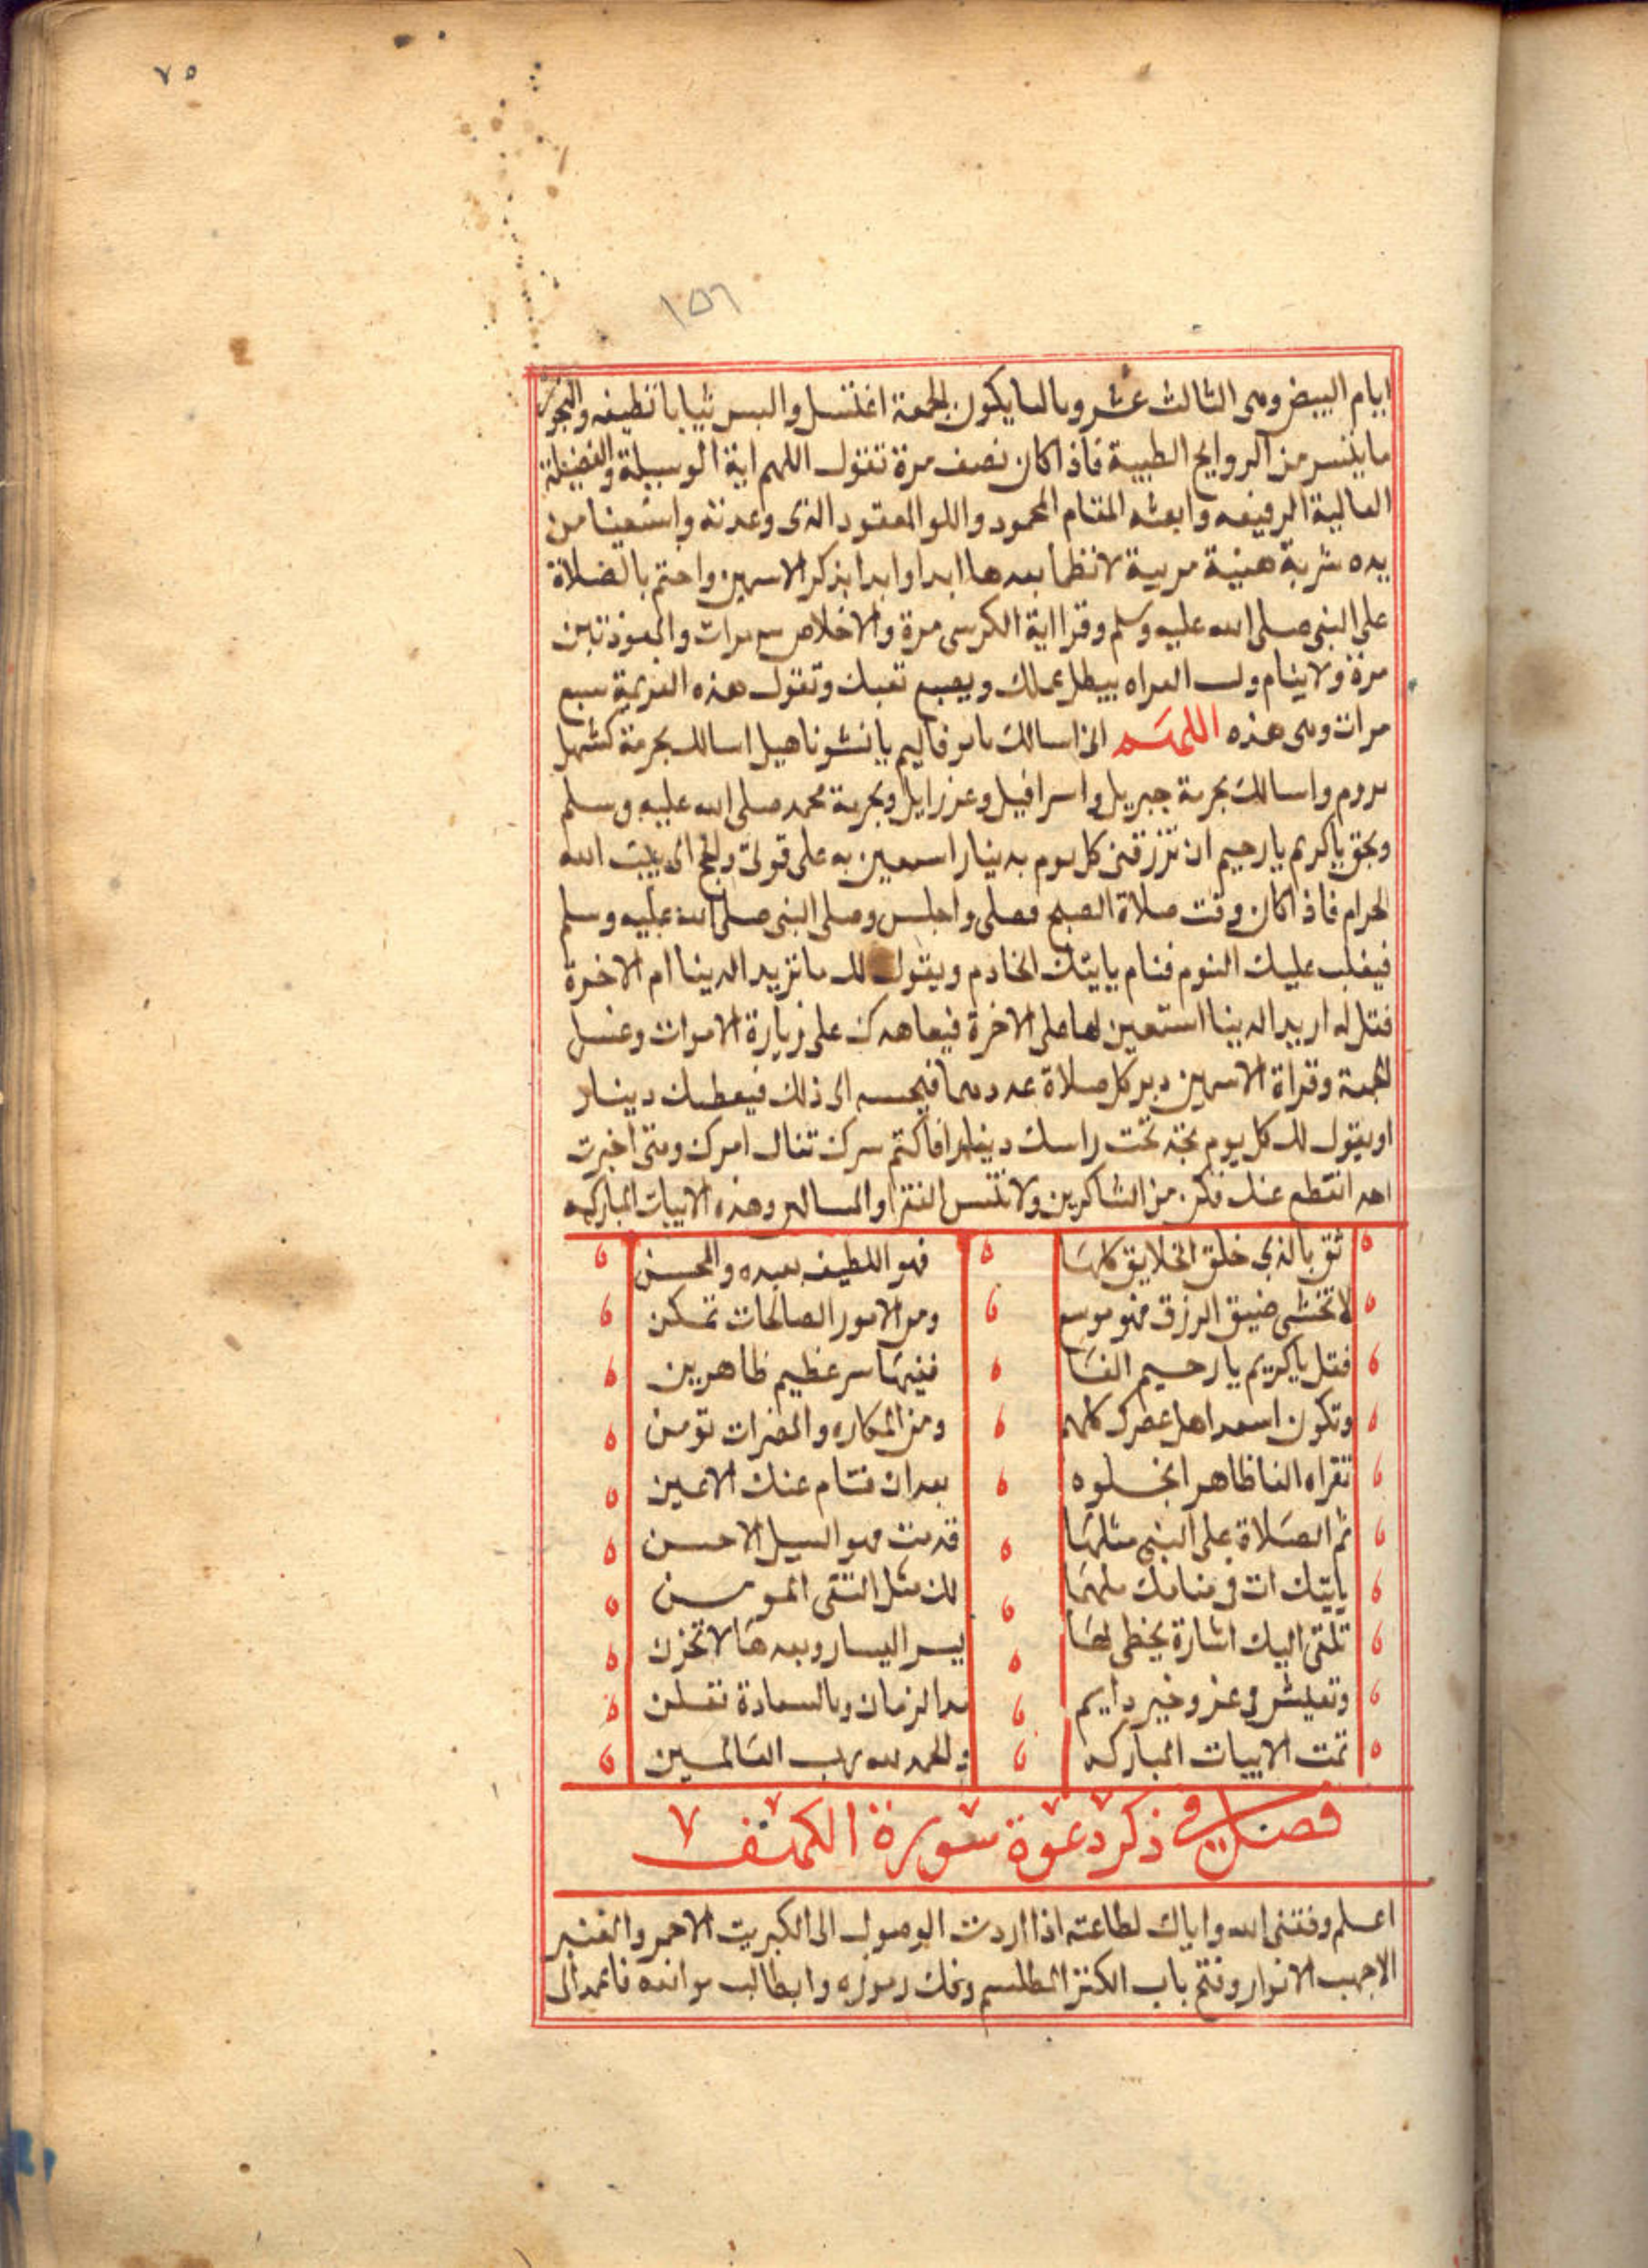 ٧٥
١٥٦
ايام البيض وهى الثالث عشر وبالما يكون الجمعة اغتسل والبس ثيابا نظيفه والبخور
ما يتسر من الروايح الطيبة فاذا كان نصف مرة تقول اللهم اية الوسيلة والفضيلة
العالية الرفيعه وابعثه المقام المحمود واللوا المعقود الذى وعدته واسقينا من
يده شربة هنية مرية لا نظما بعدها ابدا وابدا بذكر الاسمين واختم بالصلاة
على النبى صلى الله عليه وسلم وقرا اية الكرسى مرة والاخلاص مرات والمعوذتين
مرة ولا ينام العراه يبطل عملك ويصيع تعبك وتقول هذه العزيمة سبع
مرات وهى هذه اللهم انى اسالك يا نشوناهيل اسالك بحرمة كشهل
واسالك بحرمة جبريل واسرافيل وعزرايل وبحرمة محمد صلى الله عليه وسلم
وبحق يا كريم يا رحيم ان ترزقنى كل يوم دينار استعين به على قوتى والحج الى بيت الله
الحرام فاذا كان وقت صلاة الصبح فصلى واجلس وصلى النبى صلى الله عليه وسلم
فيغلب عليك النوم فنام ياتيك الخادم ويقول لك ما تريد الدينا ام الاخرة
فقل له اريد الدينا استعين بها على الاخرة فيعاهدك على زيارة الاموات وغسل
الجمعة وقراة الاسمين دبر كل صلاة عددهما الى ذلك فيعطيك دينار
او يقول لك كل يوم تجد تحت راسك دينارا فاكتم سرك تنال امرك ومتى اخبرت
احد انقطع عنك فكن من الشاكرين ولا تنس الفقرا والمساكين وهذه الابيات المباركه
ثق بالذى خلق الخلايق كلها فهو اللطيف بعبده والمحسن
لا تخشى ضيق الرزق فهو موسع ومن الامور الصالحات تمكن
فقل يا كريم يا رحيم الفا ففيها سر عظيم ظاهرين
وتكون اسعد اهل عصرك كلهم ومن المكاره والمضرات تومن
تقراه الفا ظاهرا بخلوه بعد ان تنام عنك الاعين
ثم الصلاة على النبى مثلها فهو السيل الاحسن
ياتيك ات فى منامك ملهما لك مثل التقى المومن
تلقى اليك اشارة يخطى لها يسر اليسار وبعدها لا تحزن
وتعيش فى عز وخير دايم مدا الزمان وبالسعادة تعلن
تمت الابيات المباركه والحمد لله رب العالمين
فصل فى ذكر دعوة سورة الكهف
اعلم وفقنى الله واياك لطاعته اذا اردت الوصول الى الكبريت الاحمر والعنبر
الاجهب الانوار وفتح باب الكنز المطلسم وفك رموزه وابطال موانعه فاعمد الى